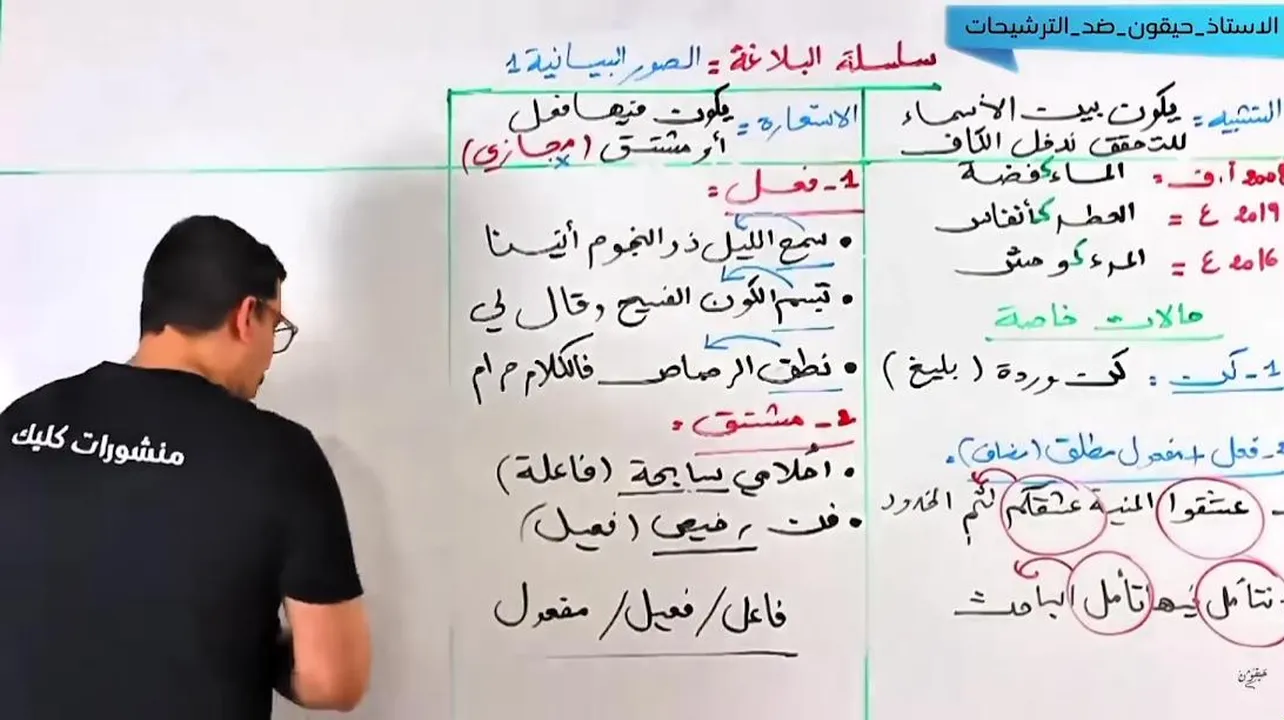 الاستاذ_حيقون_ضد_الترشيحات
سلسلة البلاغة = الصور البيانية 1
التشبيه = يكون بين الأسماء
للتحقق ندخل الكاف
2008 أ.ف = الماء كفضة
2019 ع = العطر كأنفاس
2016 ع = المرء كوحش
حالات خاصة
1 - كن : كن وردة (بليغ)
2 - فعل + مفعول مطلق (مضاف).
- عشقوا المنية عشقكم لثم الخدود
- نتأمل فيها تأمل الباحث
الاستعارة = يكون فيها فعل
أو مشتق (مجازي)
x
1 - فعل =
• سمع الليل ذو النجوم أنينا
• تبسم الكون الفسيح وقال لي
• نطق الرصاص فالكلام حرام
2 - مشتق =
• أحلامي سابحة (فاعلة)
• فن رخيص (فعيل)
فاعل / فعيل / مفعول
منشورات كليك
حيقون